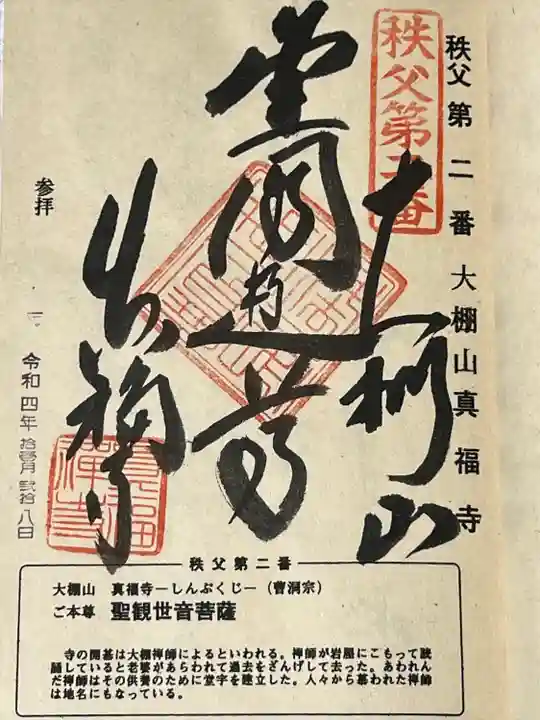 秩父第二番 大棚山真福寺
秩父第二番
大棚山
真福寺
参拝
令和四年 拾壱月 弐拾八日
秩父第二番
大棚山 真福寺―しんぷくじ―(曹洞宗)
ご本尊 聖観世音菩薩
寺の開基は大棚禅師によるといわれる。禅師が岩屋にこもって読
誦していると老婆があらわれて過去をざんげして去った。あわれん
だ禅師はその供養のために堂宇を建立した。人々から慕われた禅師
は地名にもなっている。